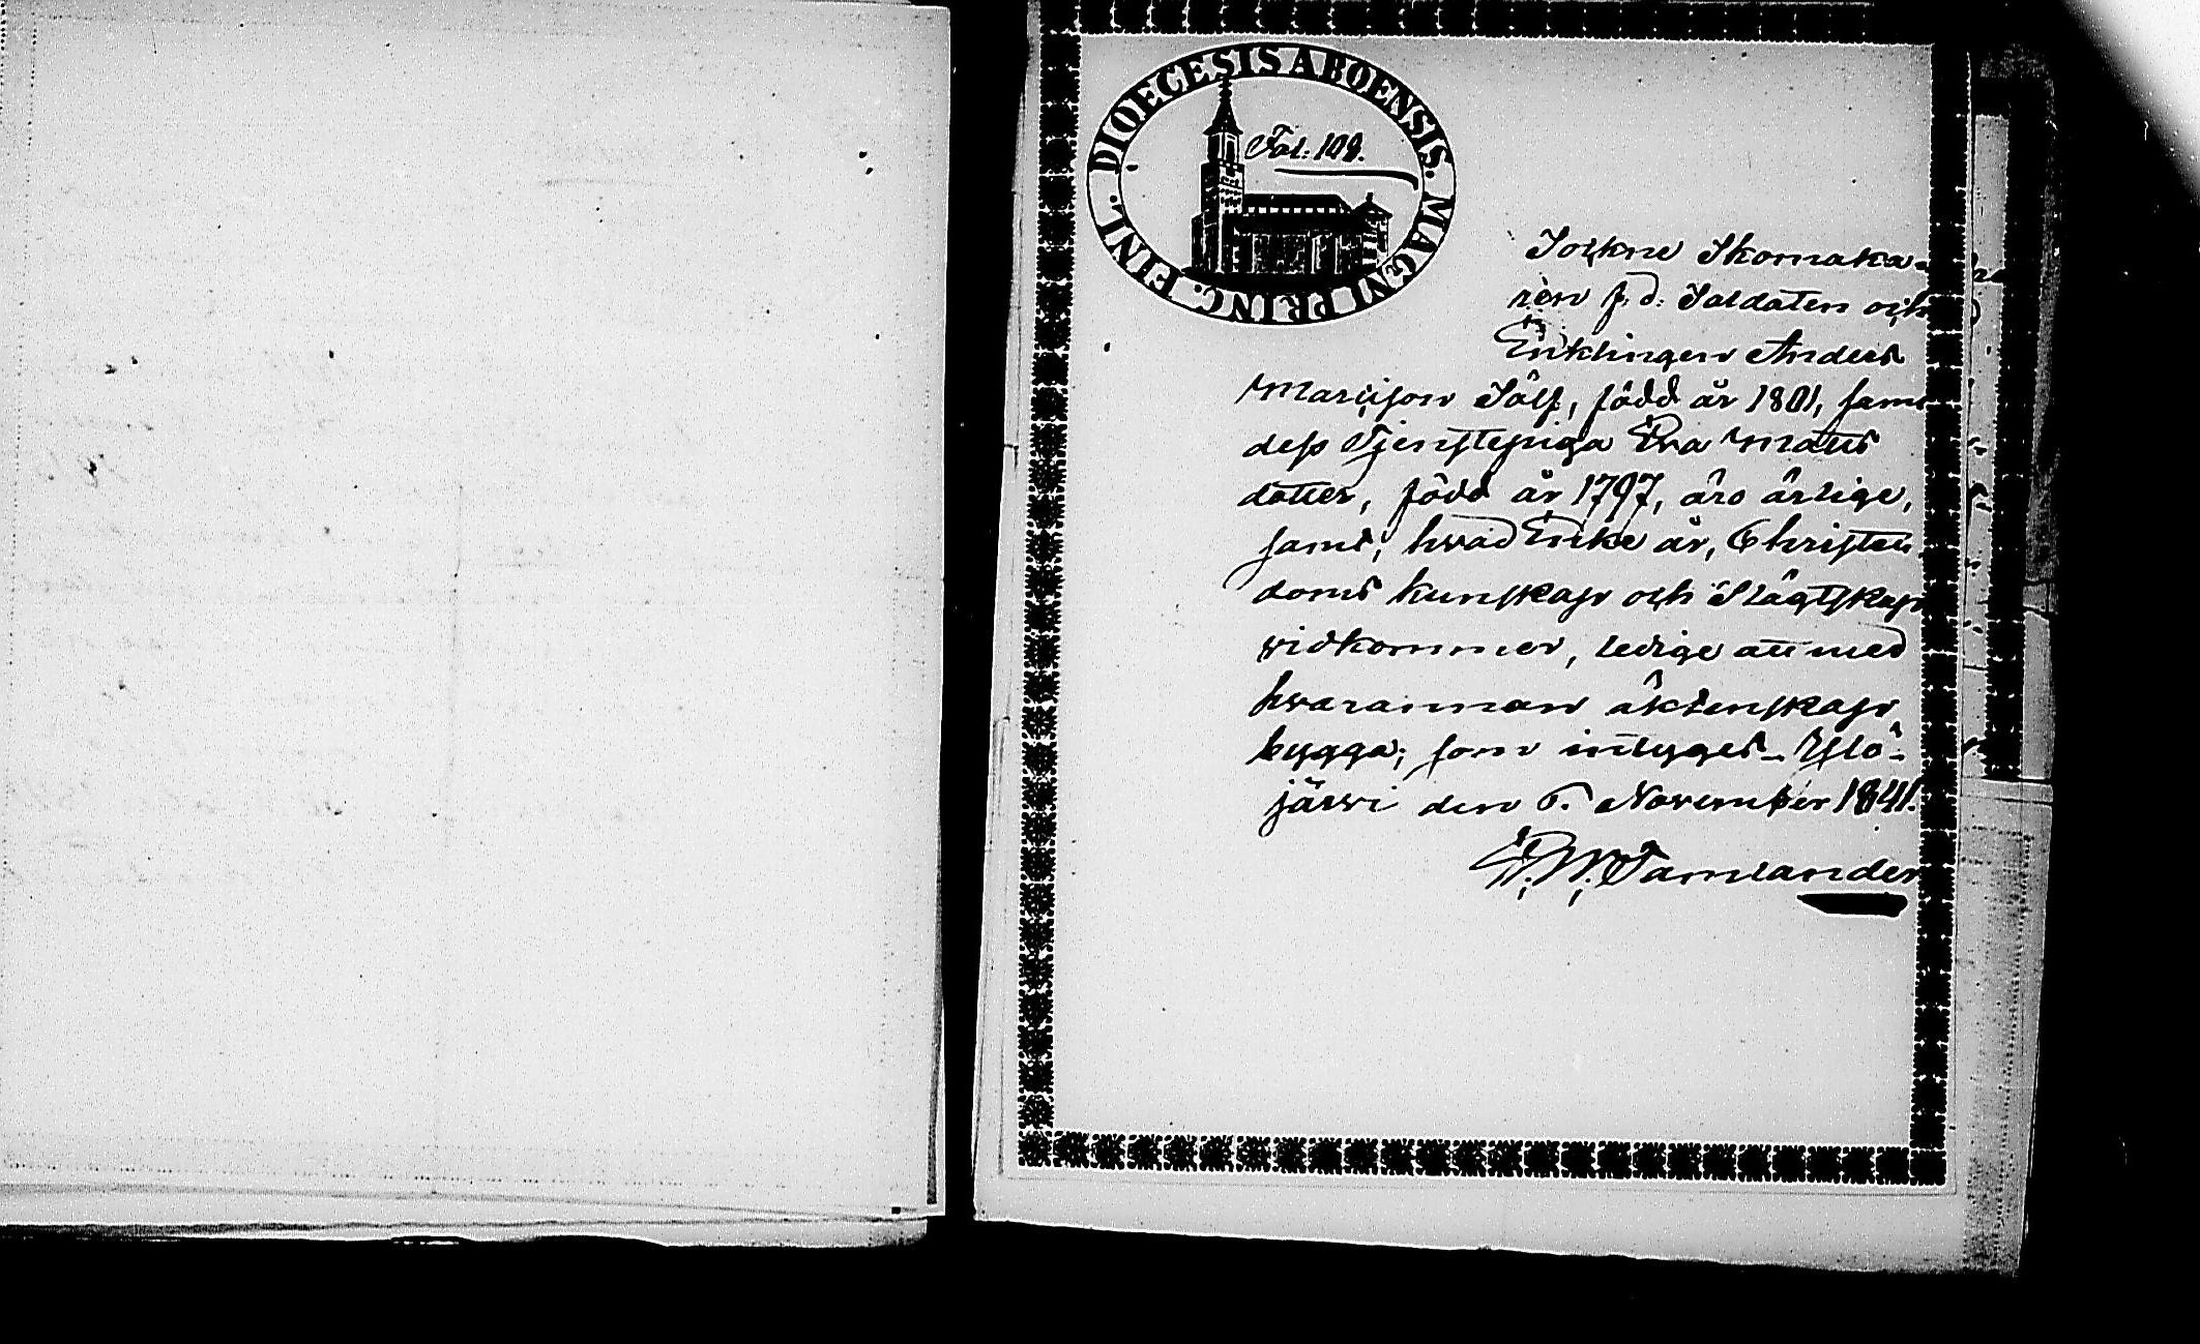 DIOECESIS ABOENSIS. MAGNI PRINC. FINL.
Fol: 109.
Sockne Skomaka-
ren f. d. Soldaten och
Enklingen Anders
Mattsson Sölf, född år 1801, samt
dess Tjenstepiga Eva Matts
dotter, född år 1797, äro ärlige,
samt, hvad Enke är, Christen
doms kunskap och Slägtskap
vidkommer, ledige att med
hvarannan äktenskap
bygga; som intygas_ Ylö-
järvi den 6. November 1841.
Tamlander